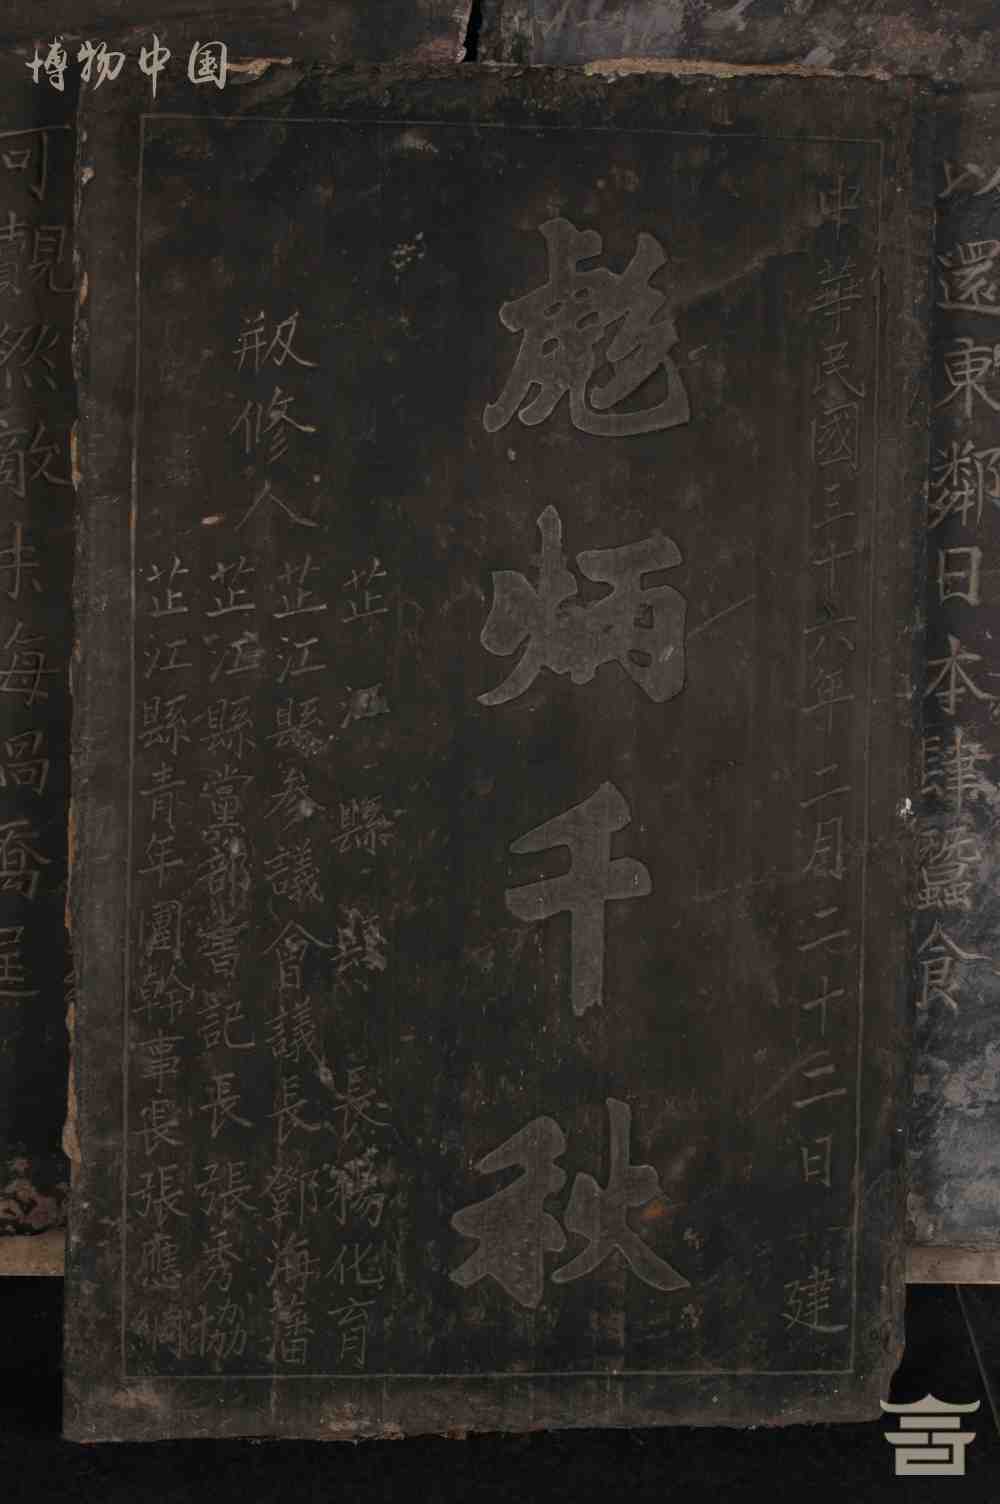 博物中国
以還東鄰日本肆蠶食
中華民國三十六年二月二十二日建
彪炳千秋
芷江縣縣長楊化育
芷江縣參議會議長鄧海藩
芷江縣黨部書記長張秀協
芷江縣青年團幹事長張應綱
修人
可覿然敵未每過喬